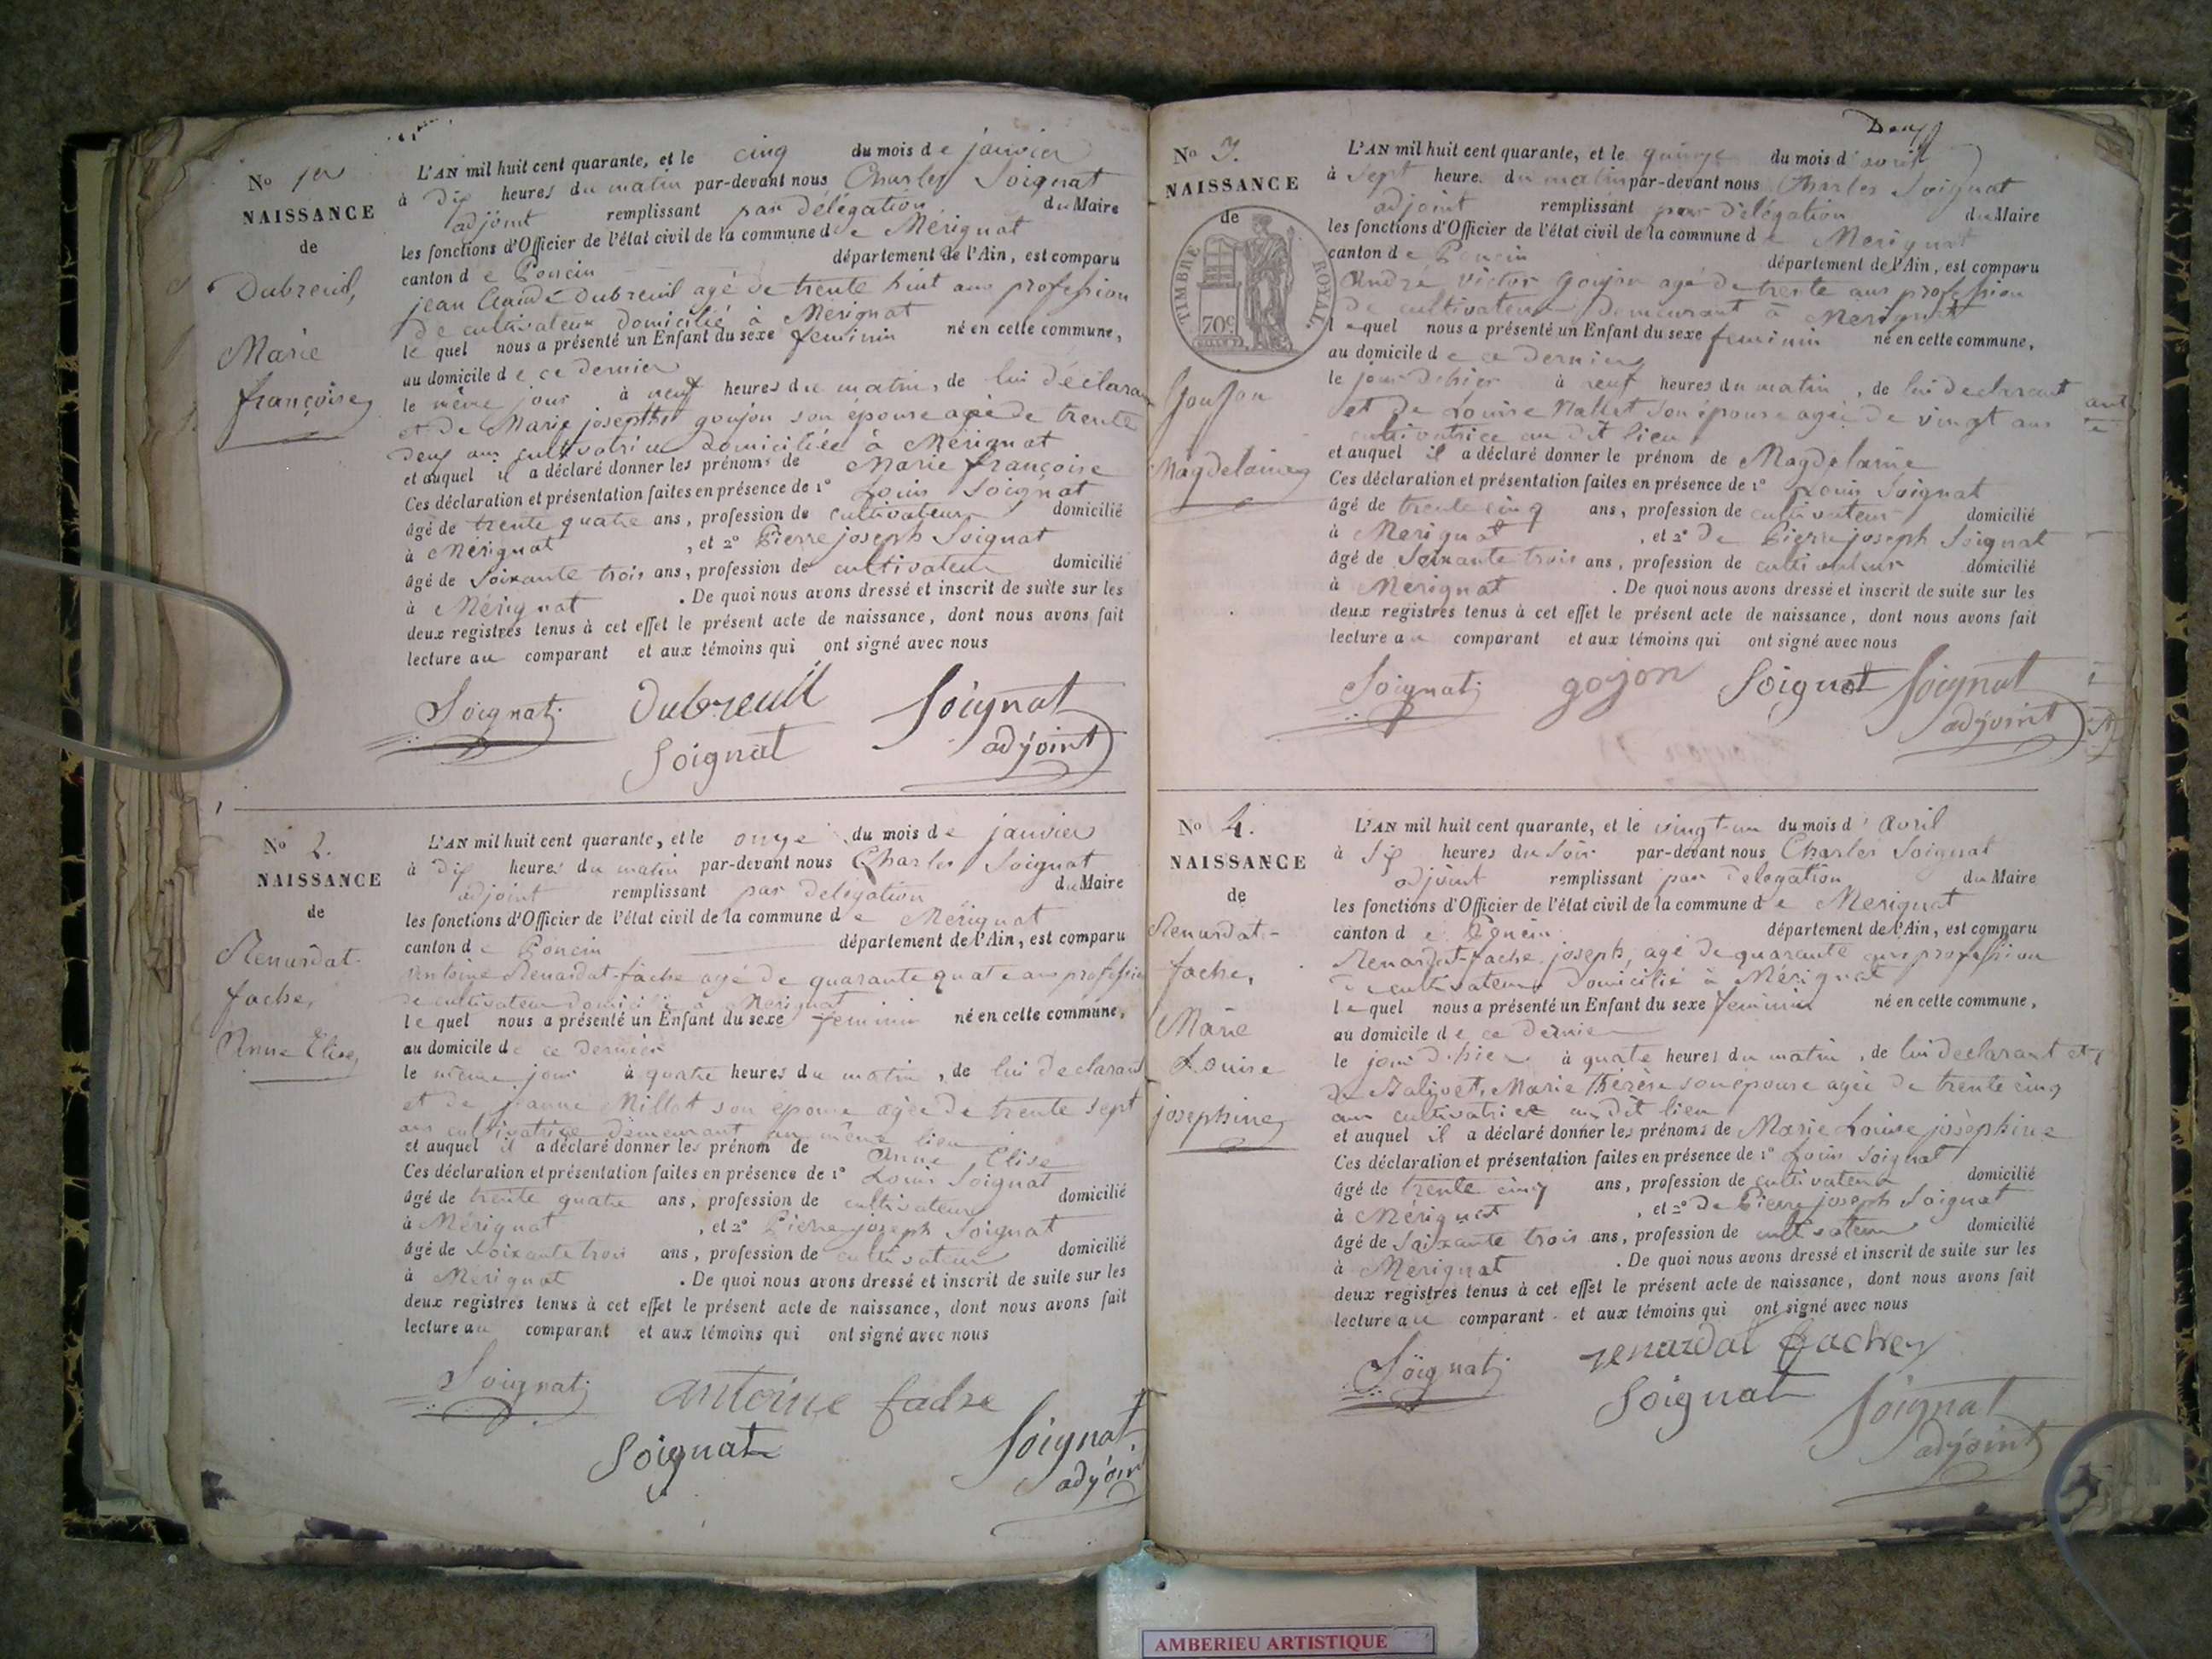 No 1er
NAISSANCE
de
Dubreuil,
Marie
françoise
L'AN mil huit cent quarante, et le cinq du mois de janvier
à dix heures du matin par-devant nous Charles Soignat
adjoint remplissant par délégation du Maire
les fonctions d'Officier de l'état civil de la commune de Mérignat
canton de Poncin département de l'Ain, est comparu
jean Claude Dubreuil agé de trente huit ans profession
de cultivateur domicilié à Mérignat
le quel nous a présenté un Enfant du sexe feminin né en cette commune,
au domicile de ce dernier
le même jour à neuf heures du matin, de lui déclarant
et de Marie josephte goujon son épouse agée de trente
deux ans cultivatrice domiciliée à Mérignat
et auquel il a déclaré donner les prénoms de Marie françoise
Ces déclaration et présentation faites en présence de 1° Louis Soignat
âgé de trente quatre ans, profession de cultivateur domicilié
à Mérignat, et 2° Pierre joseph Soignat
âgé de soixante trois ans, profession de cultivateur domicilié
à Mérignat. De quoi nous avons dressé et inscrit de suite sur les
deux registres tenus à cet effet le présent acte de naissance, dont nous avons fait
lecture au comparant et aux témoins qui ont signé avec nous
Soignat Dubreuil Soignat
Soignat adjoint
No 2.
NAISSANCE
de
Renardat-
fache,
Anne Elise
L'AN mil huit cent quarante, et le onze du mois de janvier
à dix heures du matin par-devant nous Charles Soignat
adjoint remplissant par delegation du Maire
les fonctions d'Officier de l'état civil de la commune de Mérignat
canton de Poncin département de l'Ain, est comparu
Antoine Renardat-fache agé de quarante quatre ans profession
de cultivateur domicilié à Merignat
le quel nous a présenté un Enfant du sexe feminin né en cette commune,
au domicile de ce dernier
le même jour à quatre heures du matin, de lui declarant
et de jeanne Millot son épouse agée de trente sept
ans cultivatrice demeurant au même lieu
et auquel il a déclaré donner les prénom de Anne Elise
Ces déclaration et présentation faites en présence de 1° Louis Soignat
âgé de trente quatre ans, profession de cultivateur domicilié
à Mérignat, et 2° Pierre joseph Soignat
âgé de soixante trois ans, profession de cultivateur domicilié
à Mérignat. De quoi nous avons dressé et inscrit de suite sur les
deux registres tenus à cet effet le présent acte de naissance, dont nous avons fait
lecture au comparant et aux témoins qui ont signé avec nous
Soignat antoine fache
Soignat Soignat
adjoint
Deux
No 3.
NAISSANCE
de
TIMBRE ROYAL
70c
Goujon
Magdelaine
L'AN mil huit cent quarante, et le quinze du mois d'avril
à sept heure du matin par-devant nous Charles Soignat
adjoint remplissant par délégation du Maire
les fonctions d'Officier de l'état civil de la commune de Merignat
canton de Poncin département de l'Ain, est comparu
André victor Goujon agé de trente ans profession
de cultivateur demeurant à Merignat
lequel nous a présenté un Enfant du sexe feminin né en cette commune,
au domicile de ce dernier
le jour d'hier à neuf heures du matin, de lui declarant
et de Louise Nallet son épouse agée de vingt ans
cultivatrice au dit lieu
et auquel il a déclaré donner le prénom de Magdelaine
Ces déclaration et présentation faites en présence de 1° Louis Soignat
âgé de trente cinq ans, profession de cultivateur domicilié
à Merignat, et 2° De Pierre joseph Soignat
âgé de Soixante trois ans, profession de cultivateur domicilié
à Merignat. De quoi nous avons dressé et inscrit de suite sur les
deux registres tenus à cet effet le présent acte de naissance, dont nous avons fait
lecture au comparant et aux témoins qui ont signé avec nous
Soignat gojon Soignat Soignat
adjoint
No 4.
NAISSANCE
de
Renardat-
fache,
Marie
Louise
josephine
L'AN mil huit cent quarante, et le vingt-un du mois d'Avril
à six heures du soir par-devant nous Charles Soignat
adjoint remplissant par delegation du Maire
les fonctions d'Officier de l'état civil de la commune de Merignat
canton de Poncin département de l'Ain, est comparu
Renardat-fache joseph, agé de quarante ans profession
de cultivateur domicilié à Mérignat
lequel nous a présenté un Enfant du sexe feminin né en cette commune,
au domicile de ce dernier
le jour d'hier à quatre heures du matin, de lui declarant et
de Balivet, Marie thérèse son épouse agée de trente cinq
ans cultivatrice au dit lieu
et auquel il a déclaré donner les prénoms de Marie Louise josèphine
Ces déclaration et présentation faites en présence de 1° Louis Soignat
âgé de trente cinq ans, profession de cultivateur domicilié
à Mérignat, et 2° De Pierre joseph Soignat
âgé de Soixante trois ans, profession de cultivateur domicilié
à Mérignat. De quoi nous avons dressé et inscrit de suite sur les
deux registres tenus à cet effet le présent acte de naissance, dont nous avons fait
lecture au comparant et aux témoins qui ont signé avec nous
Soignat renardat fache
Soignat Soignat
adjoint
AMBERIEU ARTISTIQUE